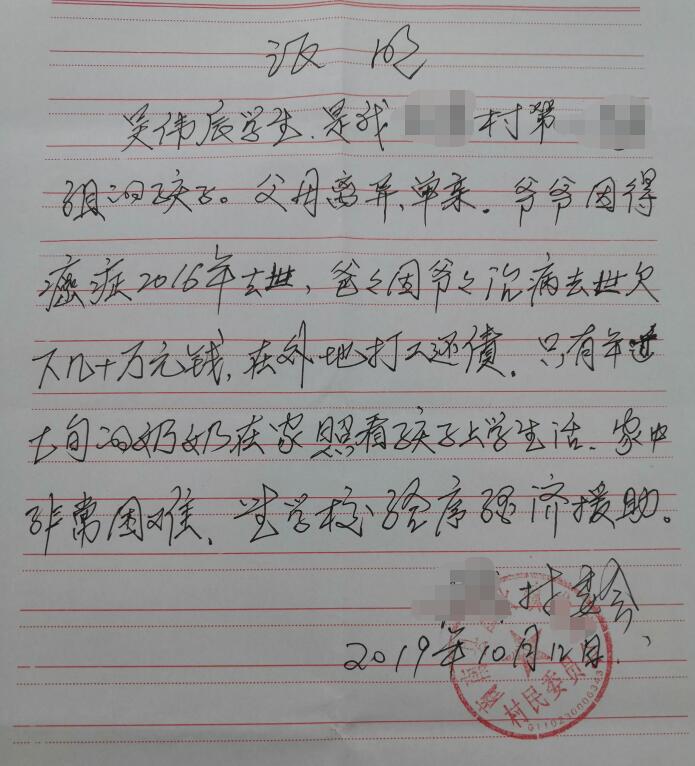 证明
吴伟辰学生，是我 村第
组的孩子。父母离异、单亲。爷爷因得
癌症2016年去世，爸々因爷々治病去世欠
下几十万元钱，在外地打工还债。只有年过
七旬的奶奶在家照看孩子上学生活。家中
非常困难、望学校给予经济援助。
村委会
2019年10月12日
村民委员